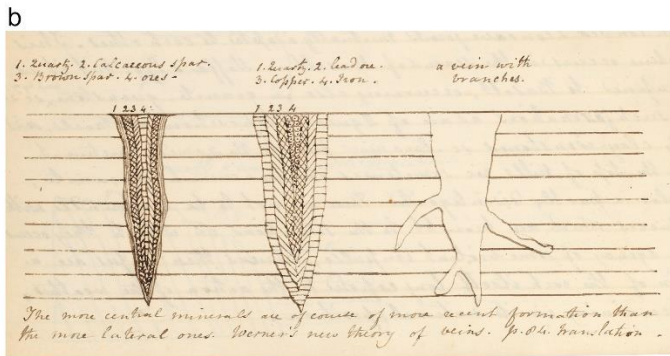 b
1. Quartz. 2. Calcaceous spar.
3. Brown spar. 4. ores -
1. Quartz. 2. lead ore.
3. Copper. 4. Iron.
a vein with
branches.
1 2 3 4
1 2 3 4
The more central minerals are of course of more recent formation than
the more lateral ones. Werner's new theory of veins. p. 84. Translation.